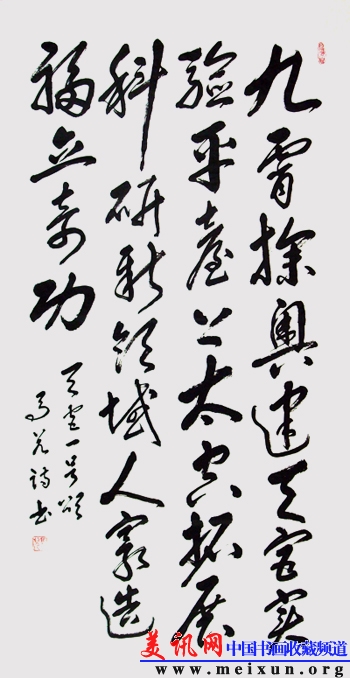 九霄探奥建天宫实
验平臺上太空拓展
科研新领域人寰造
福立奇功
天宫一号颂
诗书
美讯网 中国书画收藏频道
www.meixun.org